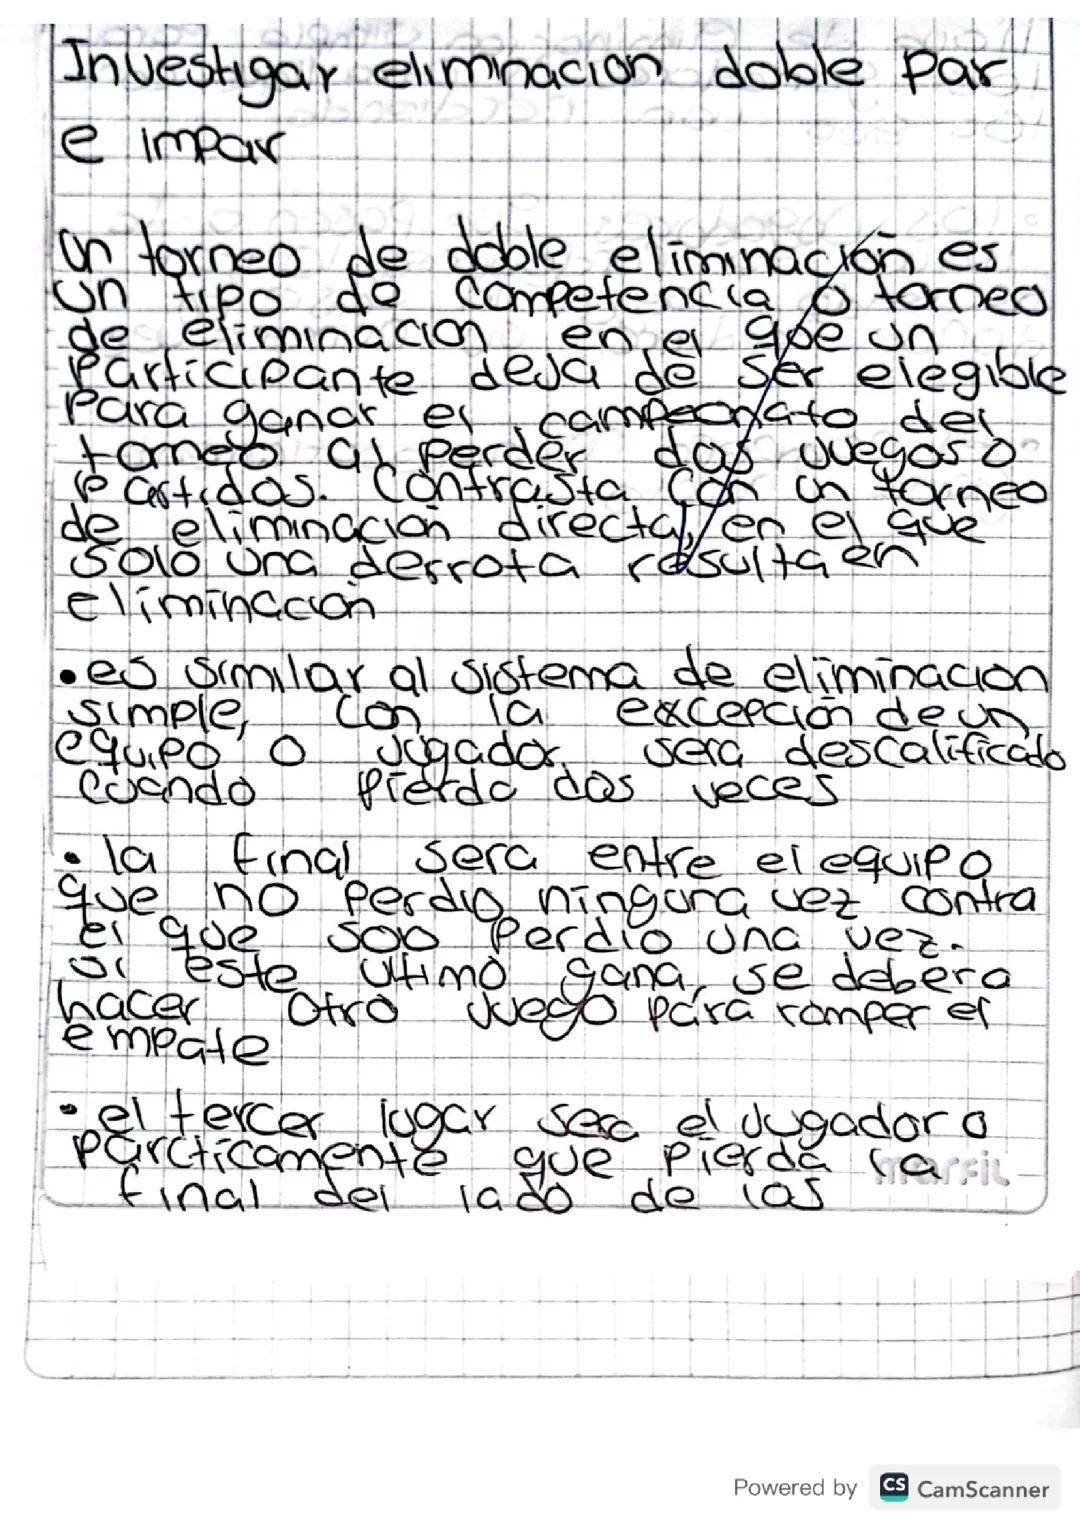 Investigar eliminacion doble par
e impar
Un torneo de doble eliminación es
un tipo de competencia o torneo
de eliminacion en el que un
participante deja de ser elegible
para ganar el campeonato del
torneo al perder dos juegos o
partidos. Contrasta con un torneo
de eliminación directa, en el que
solo una derrota resulta en
eliminación
• es similar al sistema de eliminacion
simple, con la excepción de un
equipo o jugador sera descalificado
cuando pierda dos veces
• la final sera entre el equipo
que no perdio ninguna vez contra
el que soo perdio una vez.
si este ultimo gana, se debera
hacer otro juego para romper el
empate
• el tercer lugar sera el jugador o
parcticamente que pierda la
final del lado de las
marfil
Powered by CS CamScanner